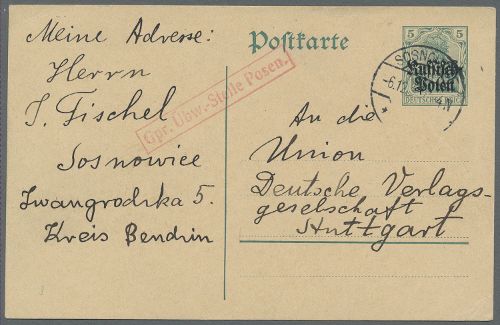 Meine Adresse:
Herrn
J. Fischel
Sosnowice
Iwangrodzka 5.
Kreis Bendzin
Postkarte
Gpr. Übw.-Stelle Posen.
5
5
Russisch-
Polen
DEUTSCHES REICH
SOSNO
6.12.
An die
Union
Deutsche Verlags-
gesellschaft
Stuttgart